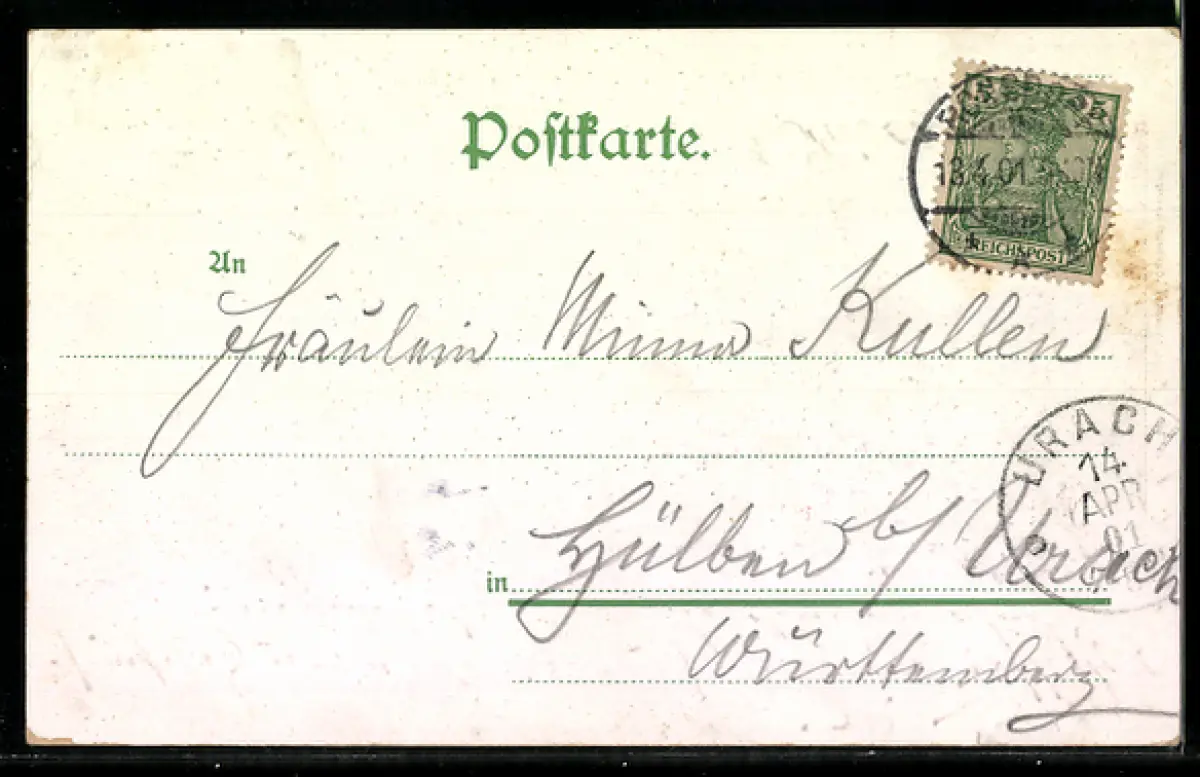 Postkarte.
13.4.01
REICHSPOST
An
Fräulein Minna Kullen
URACH
14.
APR
01
in Hülben b/ Urach
Württemberg